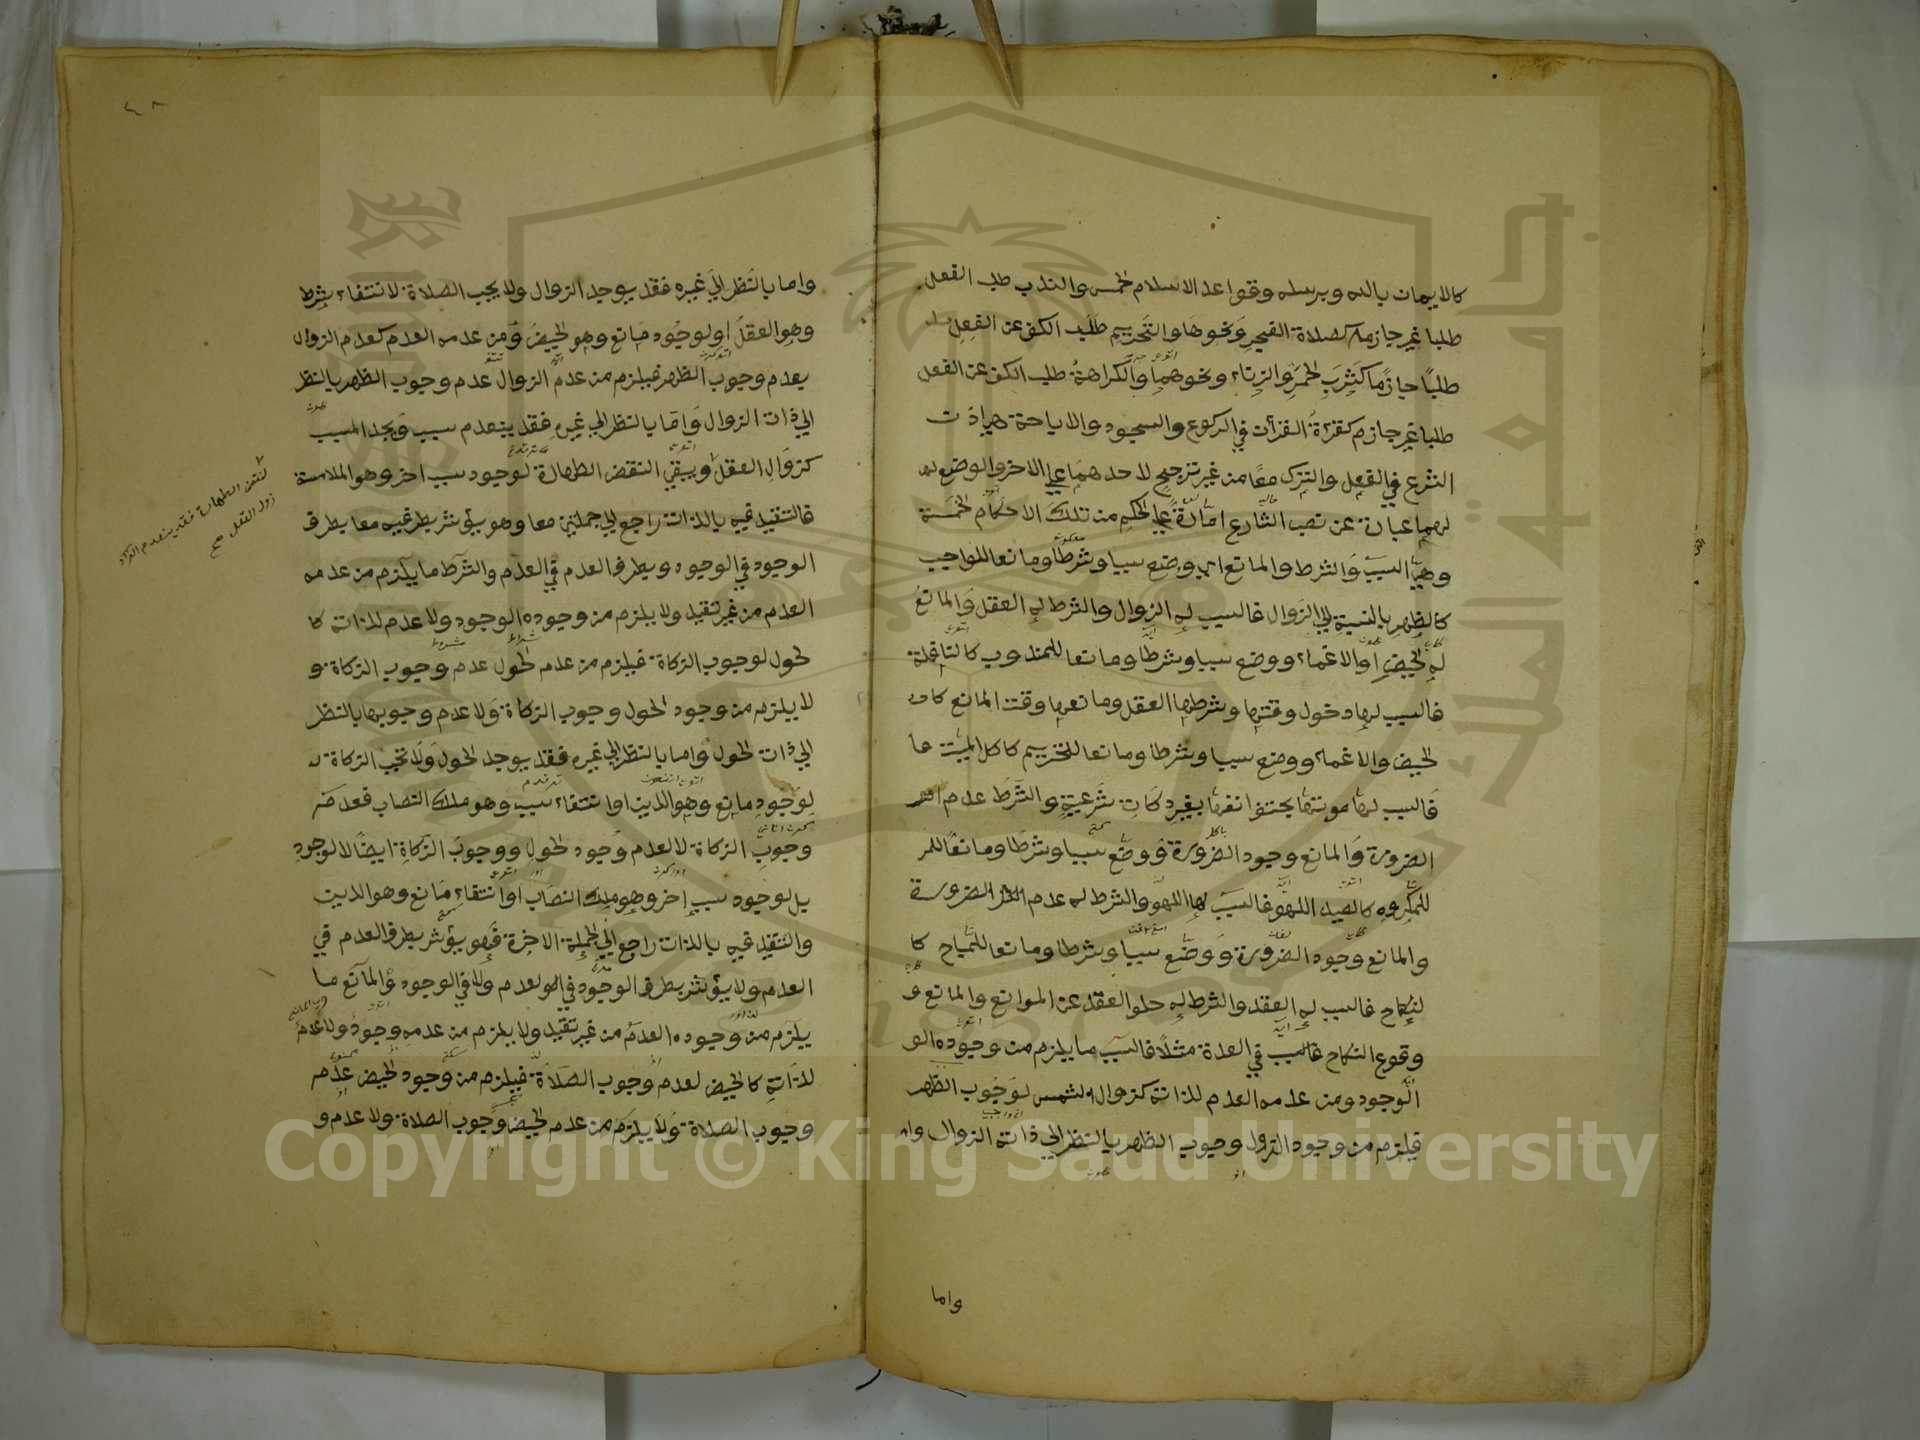 كالايمان بالله وبرسله وقواعد الاسلام الخمس والندب طلب الفعل
طلبا غير جازم كصلاة الفجر ونحوها والتحريم طلب الكف عن الفعل
طلبا جازما كشرب الخمر والزناء ونحوهما والكراهة طلب الكف عن الفعل
طلبا غير جازم كقراة القران في الركوع والسجود والاباحة هي اذن
الشرع في الفعل والترك معا من غير ترجيح لاحدهما على الاخر والوضع
لهما عبارة عن نصب الشارع امارة على الحكم من تلك الاحكام الخمسة
وهي السبب والشرط والمانع اي وضع سببا وشرطا ومانعا للواجب
كالظهر بالنسبة الى الزوال فالسبب له الزوال والشرط له العقل والمانع
له الحيض او الاغماء ووضع سببا وشرطا ومانعا للمندوب كالنافلة
فالسبب لها دخول وقتها وشرطها العقل ومانعها وقت المانع
الحيض والاغماء ووضع سببا وشرطا ومانعا للتحريم كاكل الميتة
فالسبب لها موتها بحتف انفها بغير ذكات شرعية والشرط عدم
الضرورة والمانع وجود الضرورة ووضع سببا وشرطا ومانعا
للمكروه كالصيد اللهو فالسبب لها اللهو والشرط له عدم الضرورة
والمانع وجود الضرورة ووضع سببا وشرطا ومانعا للمباح كا
لنكاح فالسبب له العقد والشرط له خلو العقد عن الموانع والمانع و
وقوع النكاح في العدة مثلا فالسبب ما يلزم من وجوده الو
الوجود ومن عدمه العدم لذاته كزوال الشمس لوجوب الظهر
فيلزم من وجود الزوال وجوب الظهر بالنظر الى ذاته الزوال
واما
٤٨
واما بالنظر الى غيره فقد يوجد الزوال ولا يجب الصلاة لانتفاء شرط
وهو العقل او لوجود مانع وهو الحيض ومن عدمه العدم كعدم الزوال
يعدم وجوب الظهر فيلزم من عدم الزوال عدم وجوب الظهر بالنظر
الى ذات الزوال واما بالنظر الى غيره فقد ينعدم سبب ويجد المسبب
كزوال العقل ويبقى النقض الطهارة لوجود سبب اخر وهو الملامسة
فالتقييد فيه بالذات راجع الى جملتين معا وهو يؤثر بطرفيه معا بطرف
الوجود في الوجود وبطرف العدم في العدم والشرط ما يلزم من عدمه
العدم من غير تقيد ولا يلزم من وجوده الوجود ولا عدم لذاته كا
لحول لوجوب الزكاة فيلزم من عدم الحول عدم وجوب الزكاة و
لا يلزم من وجود الحول وجوب الزكاة ولا عدم وجوبها بالنظر
الى ذات الحول واما بالنظر الى غيره فقد يوجد الحول ولا تجب الزكاة
لوجود مانع وهو الدين او انتفاء سبب وهو ملك النصاب فعدم
وجوب الزكاة لا لعدم وجود الحول ووجوب الزكاة ايضا لا لوجود
بل لوجود سبب اخر وهو ملك النصاب او انتفاء مانع وهو الدين
والتقيد فيه بالذات راجع الى الجملة الاخرة فهو يؤثر بطرف العدم في
العدم ولا يؤثر بطرف الوجود في العدم ولا في الوجود والمانع ما
يلزم من وجوده العدم من غير تقيد ولا يلزم من عدمه وجود ولا عدم
لذاته كالحيض لعدم وجوب الصلاة فيلزم من وجود الحيض عدم
وجوب الصلاة ولا يلزم من عدم الحيض وجوب الصلاة ولا عدم و
لنقض الطهارة فقد ينعدم
زول العقل صح
Copyright © King Saud University